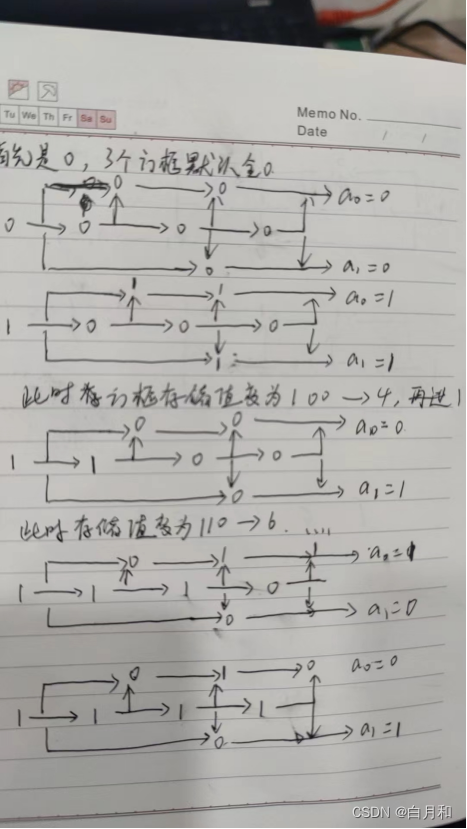 Tu We Th Fr Sa Su
Memo No.
Date / /
首先是0，3个门框默认全0
0 → 0 → a₀=0
0 → 0 → 0 → 0
0 → a₁=0
1 → 1 → a₀=1
1 → 0 → 0 → 0
1 → a₁=1
此时存门框存储值变为100→4，再进1
0 → 0 → a₀=0
1 → 1 → 0 → 0
0 → a₁=1
此时存储值变为110→6.....
0 → 1 → 1 → a₀=1
1 → 1 → 1 → 0
0 → a₁=0
0 → 1 → 0 a₀=0
1 → 1 → 1 → 1
0 → a₁=1
CSDN @白月和